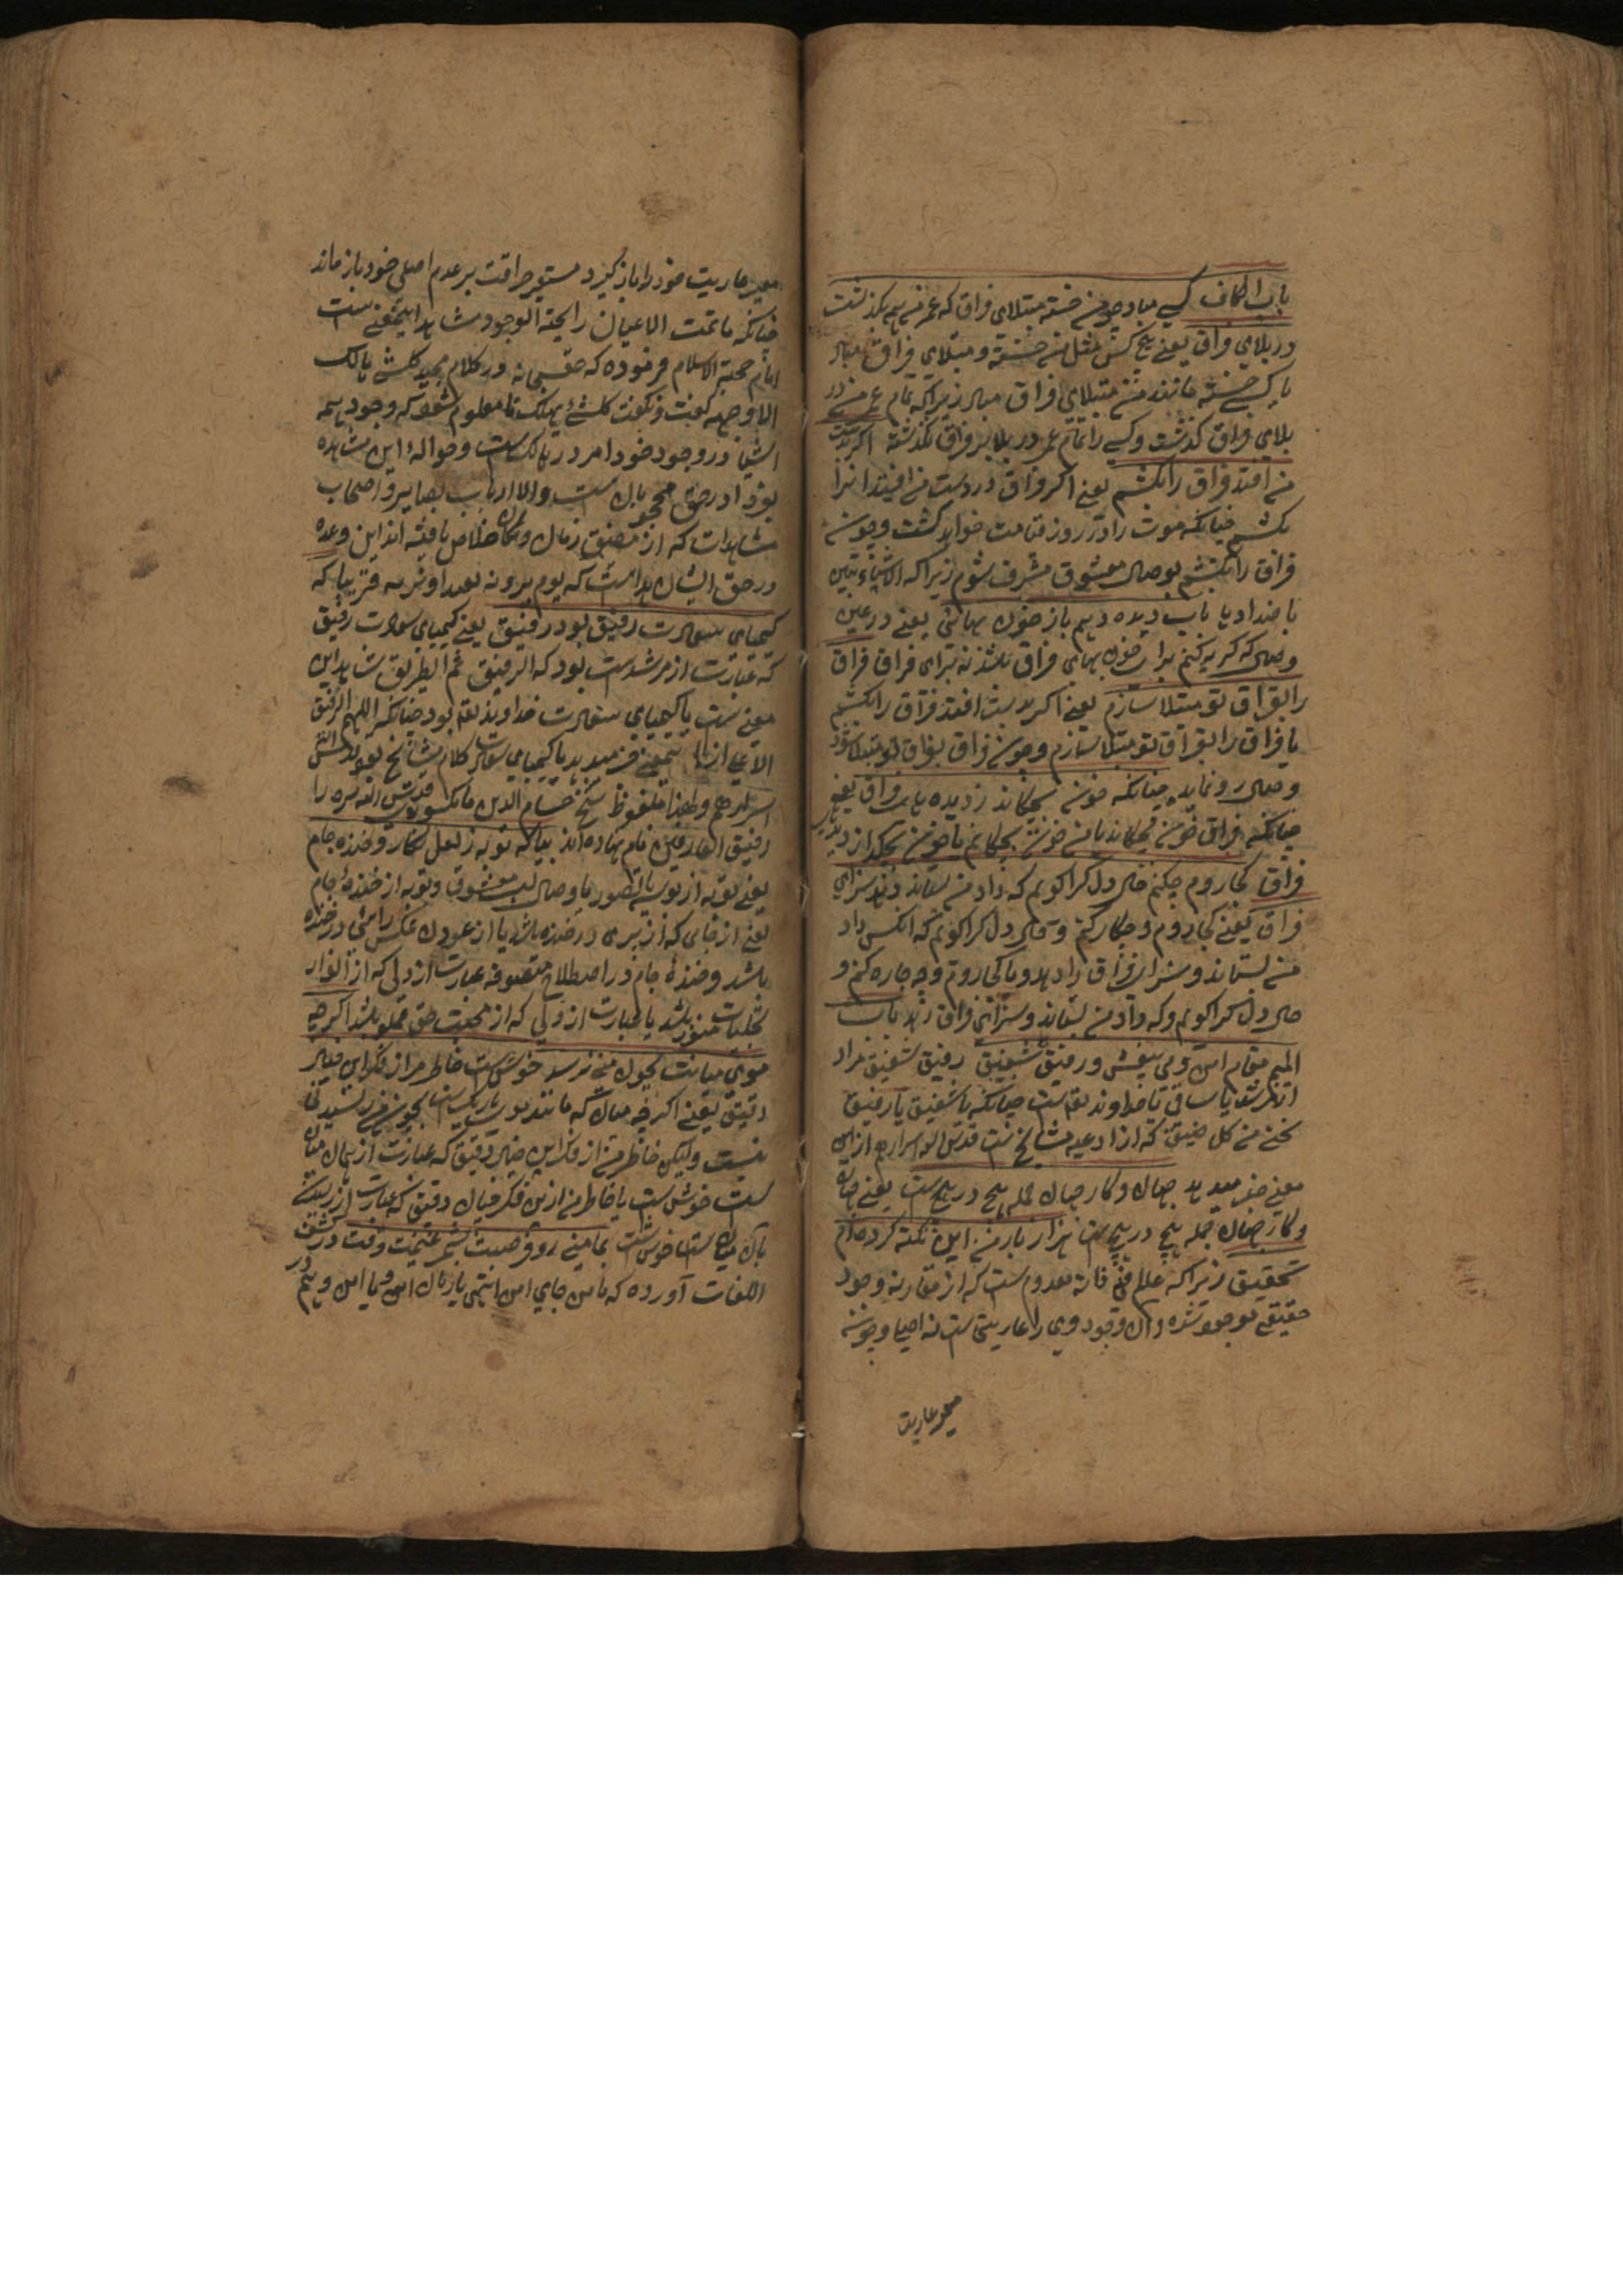 باب الکاف کسی مباد چو من خسته مبتلای فراق که عمر من همه بگذشت
در بلای فراق یعنی هیچ کس مثل من خسته و مبتلای فراق مباد
یا کسی خسته مانند من مبتلای فراق مباد زیراکه تمام عمر من در
بلای فراق گذشت و کسی را تمام عمر در بلای فراق نگذشته اگر بدست
من افتد فراق را بکشم یعنی اگر فراق در دست من افتد او را
بکشم چنانکه موت را در روز قیامت خواهد کشت و چون
فراق را بکشم بوصال معشوق مشرف شوم زیراکه الاشیاء تتبین
باضدادها بآب دیده دهم باز خون بهای یعنی در عین
وصال که گریه کنم برای خون بهای فراق باشد نه برای فراق فراق
را بفراق تو مبتلا سازم یعنی اگر بدست افتد فراق را بکشم
یا فراق را بفراق تو مبتلا سازم و چون فراق بفراق تو مبتلا شود
وصال رو نماید چنانکه خون بچکاند ز دیده‌های فراق یعنی
چنانکه فراق خون من بچکاند یا من خون بچکانم تا خون بچکد از دیده‌های
فراق کجا روم چکنم حال دل کرا گویم که داد من بستاند دهد سزای
فراق یعنی کجا روم و چکار کنم و حال دل کرا گویم که آنکس داد
من بستاند و سزای فراق را دهد و یا کجا روم و چه چاره کنم و
حال دل کرا گویم و که داد من بستاند و سزای فراق دهد باب
المیم مقام امن و می بیغش و رفیق شفیق رفیق شفیق مراد
از مرشد یا ساقی یا خداوند تعالی است چنانکه یا شفیق یا رفیق
نجنی من کل ضیق که از ادعیه مشایخ است قدس الله اسرارهم از این
معنی خبر میدهد جهان و کار جهان جمله هیچ در هیچ ست یعنی جهان
و کار جهان جمله هیچ در هیچ ست هزار بار من این نکته کرده‌ام
تحقیق زیراکه عالم فی ذاته معدوم ست که از مقارنه وجود
حقیقی موجود شده و آن وجود وی را عاریتی ست نه اصلی و چون
معیر عاریت
معیر عاریت خود را باز گیرد مستعیر حرافت بر عدم اصلی خود باز ماند
چنانکه ما شمت الاعیان رایحة الوجود شاهد اینمعنی ست
امام حجة الاسلام فرموده که حق سبحانه در کلام مجید کل شئ هالک
الا وجهه گفت و نگفت کل شئ یهلک تا معلوم شود که وجود همه
اشیا در وجود خود امروز هالک ست و حوالهٔ این مشاهده
بفردا در حق محجوبان ست والا ارباب بصایر و اصحاب
مشاهدات که از مضیق زمان و مکان خلاص یافته اند این وعده
در حق ایشان نه است که یوم یرونه بعیدا و نریه قریبا که
کیمیای سعادت رفیق بود رفیق یعنی کیمیای سعادت رفیق
که عبارت از مرشد ست بود که الرفیق ثم الطریق شاهد این
معنی ست یا کیمیای سعادت خداوند تعالی بود چنانکه اللهم الرفیق
الاعلی از اینمعنی خبر میدهد یا کیمیای سعادت کلام مشایخ بود قدس الله
اسرارهم و لهذا ملفوظ شیخ حسام الدین مانکپوری قدس الله سره را
رفیق العارفین نام نهاده‌اند بیا که توبه ز لعل نگار و خنده جام
یعنی توبه از بوسیا تصور یا وصال لب معشوق و توبه از خندهٔ جام
یعنی از جامی که از پری در خنده باشد یا از عدول عکس رامی در خنده
باشد و خندهٔ جام در اصطلاح متصوفه عبارت از دلی که از انوار
تجلیات منور باشد یا عبارت از دلی که از محبت حق مملو باشد اگرچه
موی میانت بچون منی نرسد خوش ست خاطر من از فکر این خیال
دقیق یعنی اگرچه میان که مانند موی باریک ست بچون منی رسیدنی
نیست ولیکن خاطر من از فکر این خیال دقیق که عبارت از نهان میان
ست خوش ست یا خاطر من ازین فکر خیال دقیق که عبارت از رسیدن
بآن میان ست خوش ست بمأمنی رو و فرصت شمر غنیمت وقت در کشف
اللغات آورده که مامن جای امن انتهی یا زمان امن و یا امن و هم در